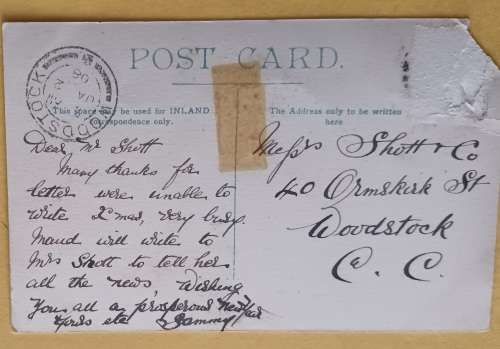 POST CARD.
WOODSTOCK
This space may be used for INLAND
correspondence only.
The Address only to be written
here
Dear, Mr Shott
Many thanks for
letter were unable to
write Xmas, very busy.
Maud will write to
Mrs Shott to tell her
all the news, Wishing
You all a prosperous New Year
Yours etc Sammy
Messrs Shott & Co
40 Ormskirk St
Woodstock
C. C.